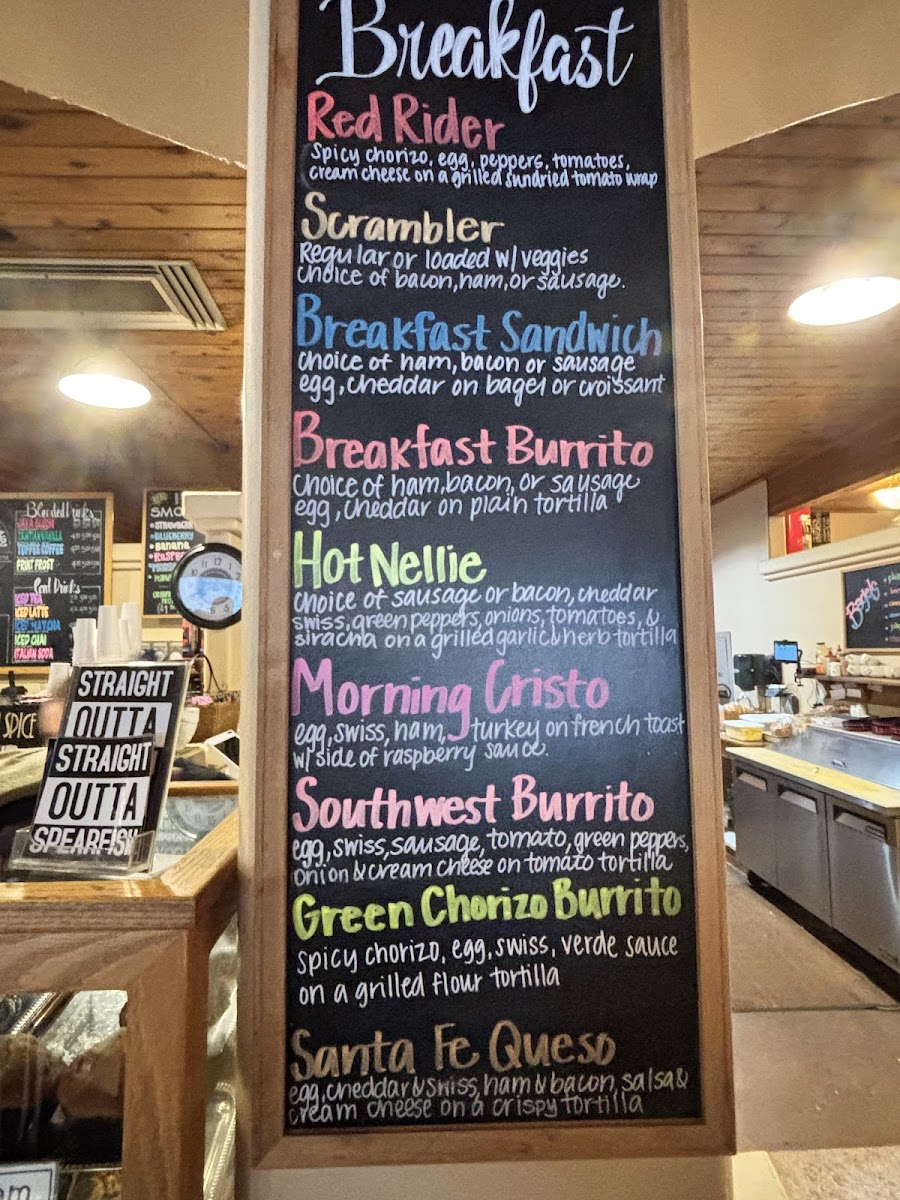 Breakfast
Red Rider
Spicy chorizo, egg, peppers, tomatoes,
cream cheese on a grilled sundried tomato wrap
Scrambler
Regular or loaded w/ veggies
choice of bacon, ham, or sausage.
Breakfast Sandwich
choice of ham, bacon or sausage
egg, cheddar on bagel or croissant
Breakfast Burrito
choice of ham, bacon, or sausage
egg, cheddar on plain tortilla
Hot Nellie
choice of sausage or bacon, cheddar
swiss, green peppers, onions, tomatoes, &
siracha on a grilled garlic & herb tortilla
Morning Cristo
egg, swiss, ham, turkey on french toast
w/ side of raspberry sauce.
Southwest Burrito
egg, swiss, sausage, tomato, green peppers,
onion & cream cheese on tomato tortilla
Green Chorizo Burrito
spicy chorizo, egg, swiss, verde sauce
on a grilled flour tortilla
Santa Fe Queso
egg, cheddar & swiss, ham & bacon, salsa &
cream cheese on a crispy tortilla
Blended Drinks
JAVA SLUSH
TOFFEE COFFEE
FRUIT FROST
Cool Drinks
ICED TEA
ICED LATTE
ICED MATCHA
ICED CHAI
ITALIAN SODA
SMO
BLUEBERRY
Banana
SPICE
STRAIGHT
OUTTA
STRAIGHT
OUTTA
SPEARFISH
Bagels